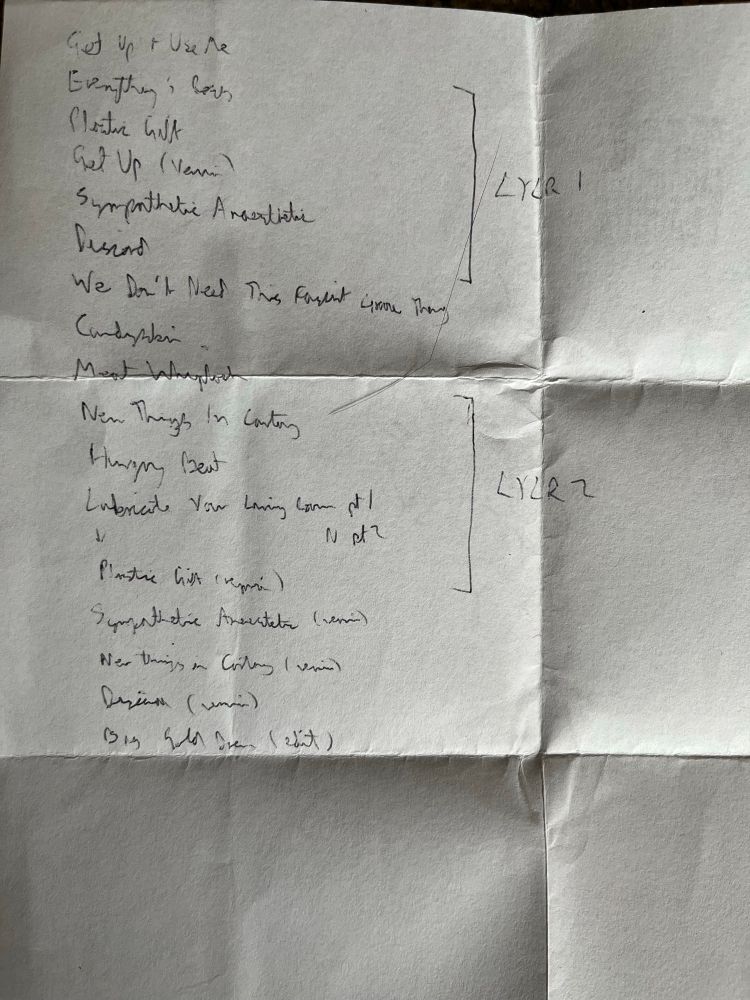 Get Up + Use Me
Everything's
Plastic Gift
Get Up (version)
Sympathetic Anaesthetic
Discord
We Don't Need This Fascist Groove Thang
Candyskin
Meat Whiplash
LYLR 1
New Things In Cartons
Hungry Beat
Lubricate Your Living Room pt 1
" " pt 2
Plastic Gift (reprise)
LYLR 2
Sympathetic Anaesthetic (version)
New things in Cartons (version)
(version)
Big Gold Dream (edit)